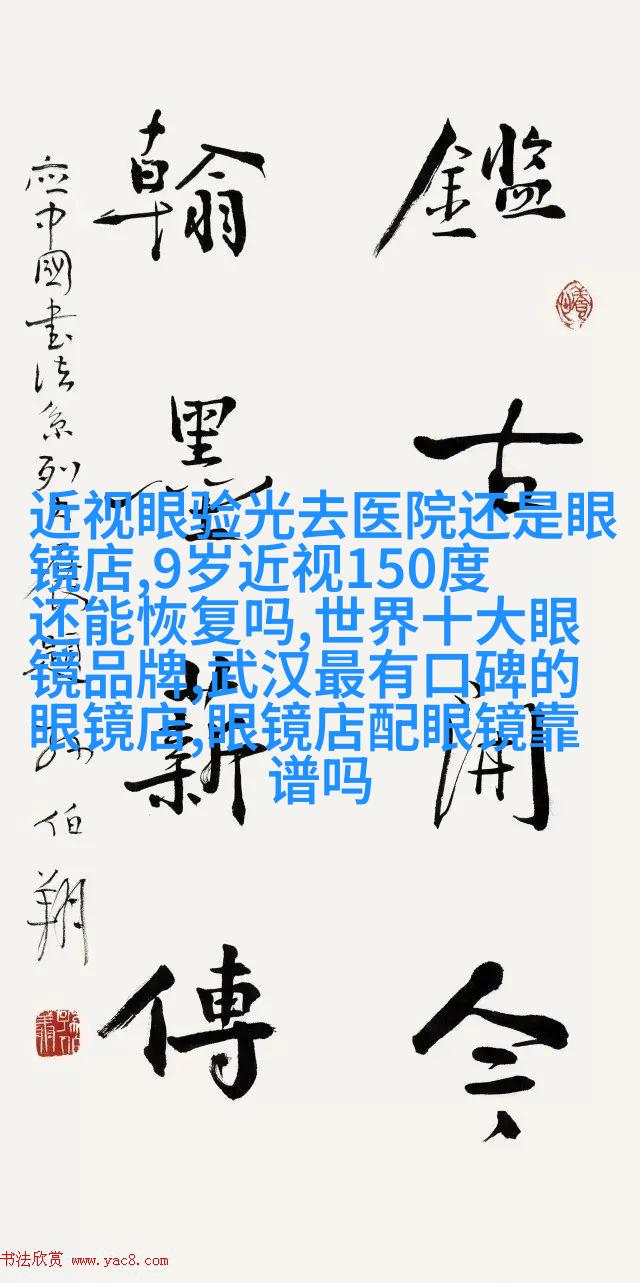 鑑古開今
翰墨薪傳
应中國書法系列大展題 孙伯翔
近视眼验光去医院还是眼
镜店,9岁近视150度
还能恢复吗,世界十大眼
镜品牌,武汉最有口碑的
眼镜店,眼镜店配眼镜靠
谱吗
书法欣赏 www.yac8.com